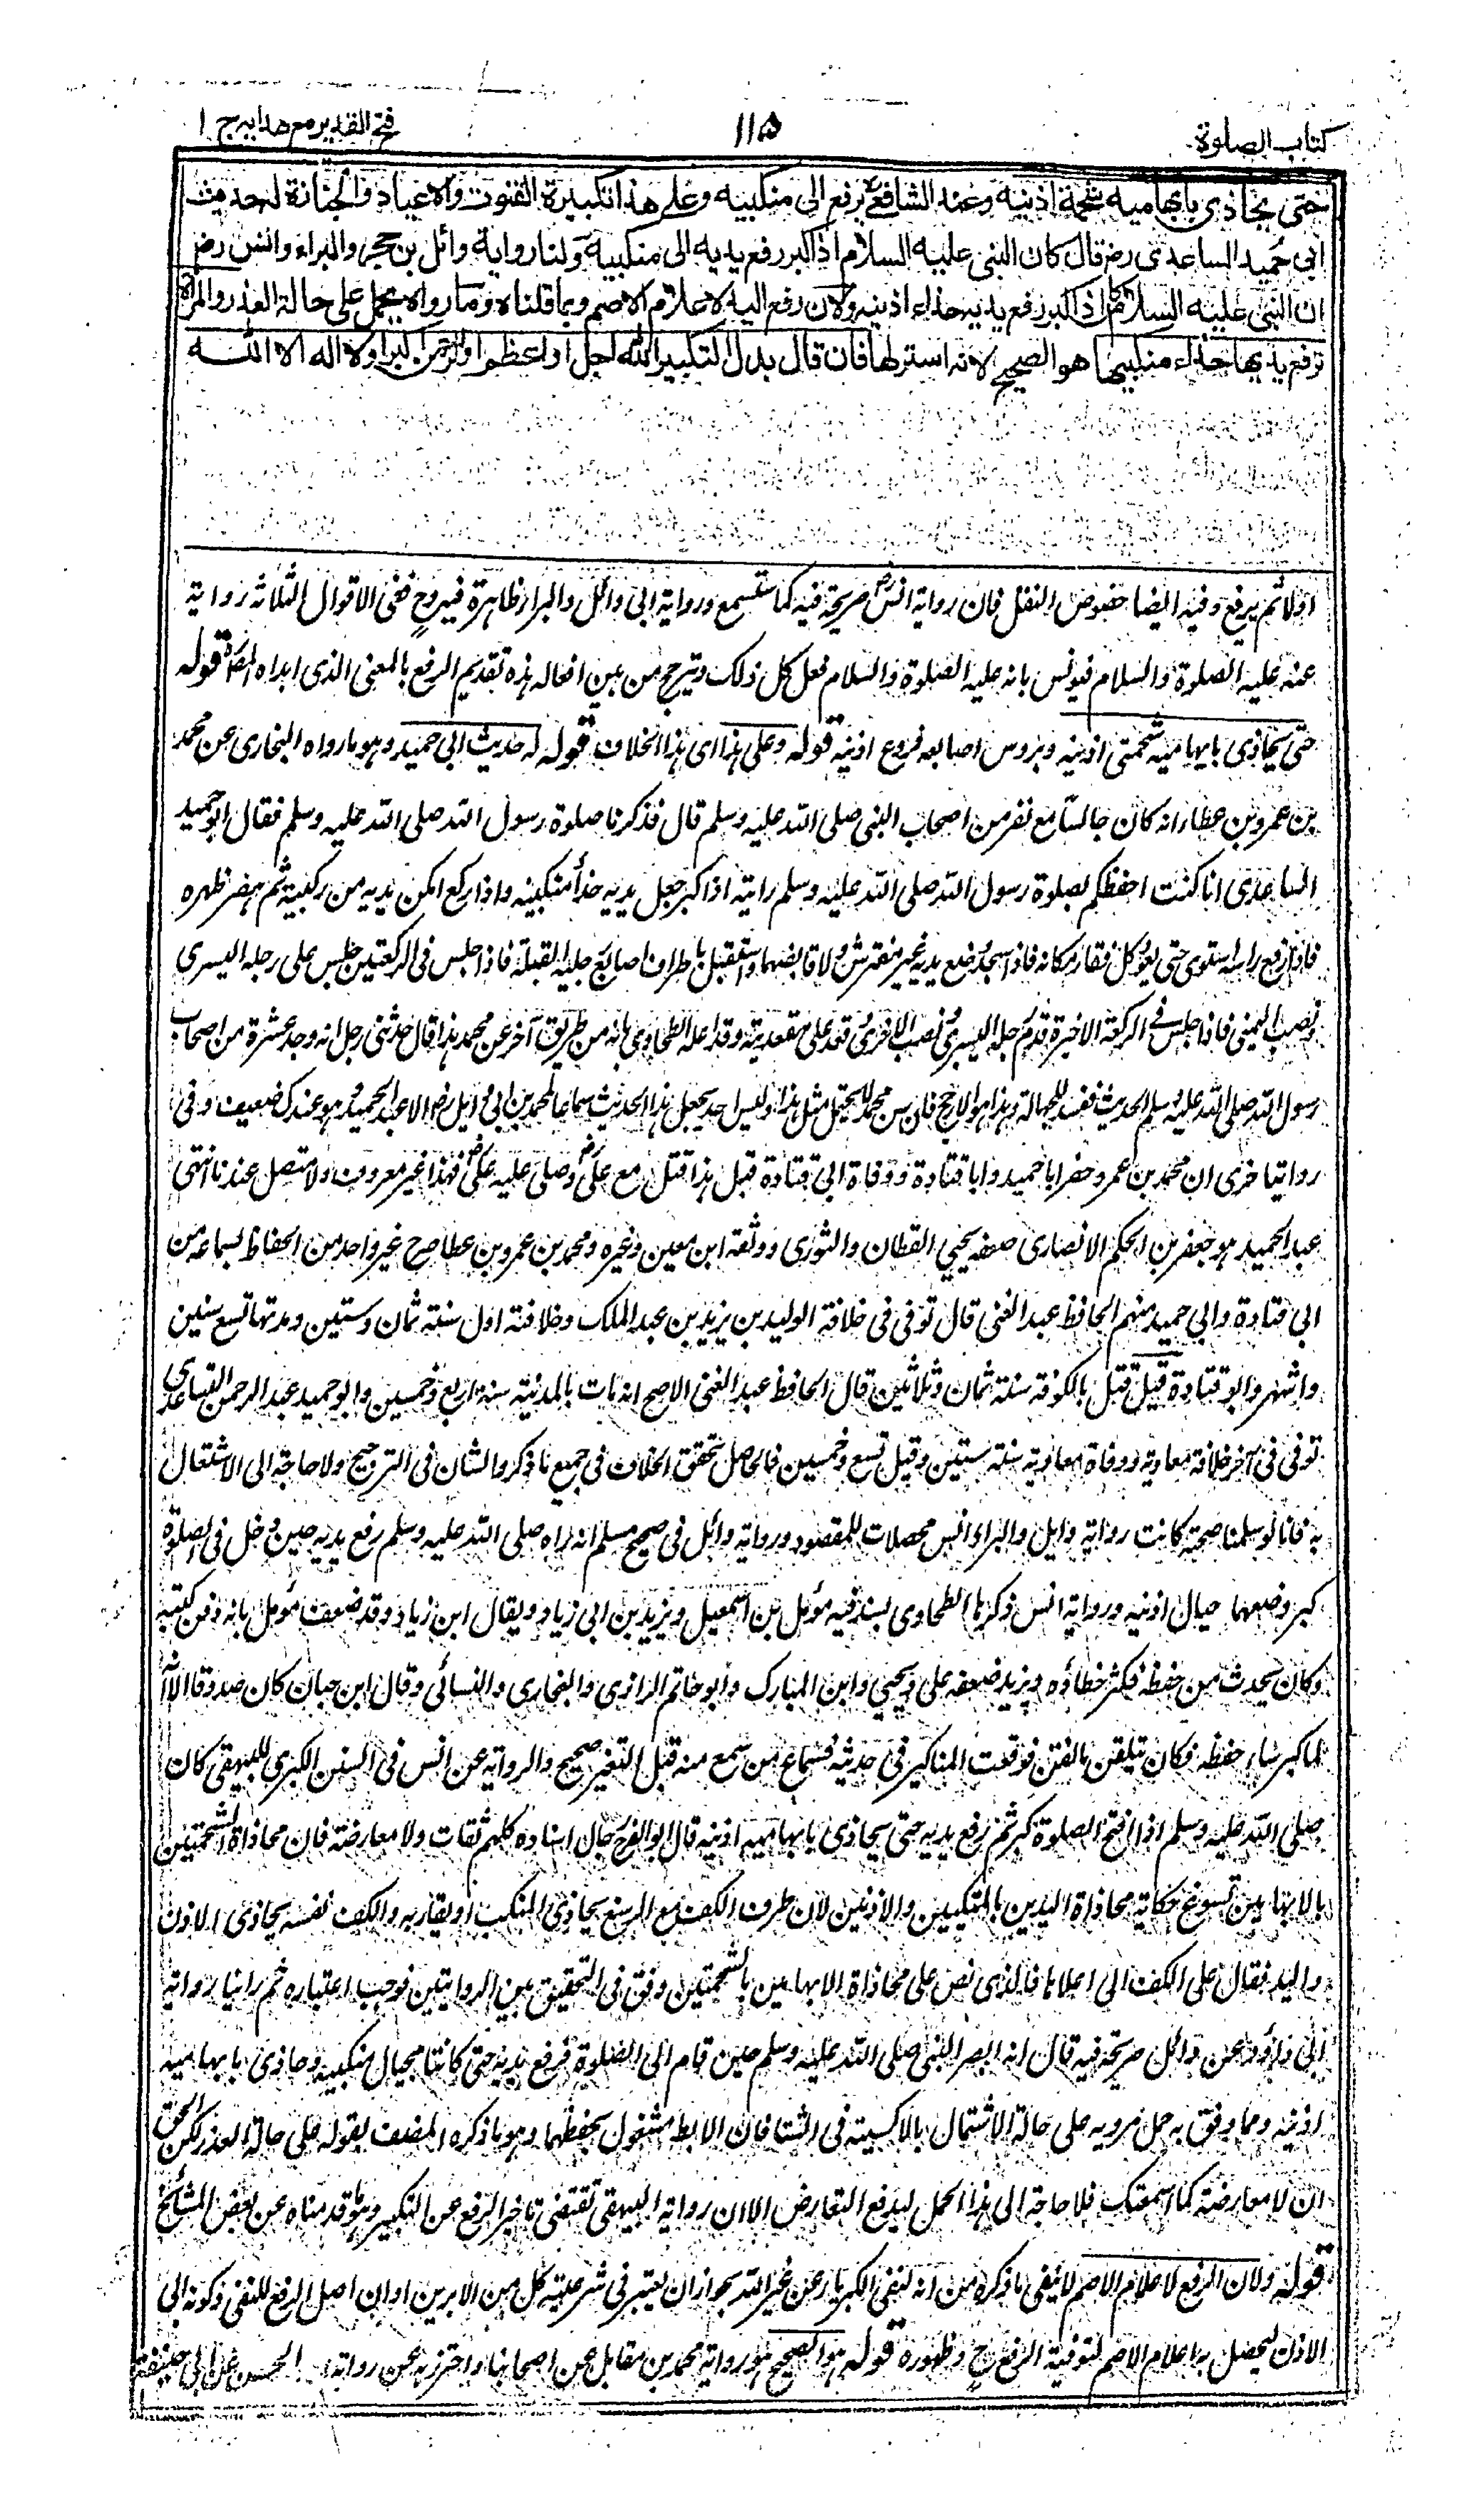 كتاب الصلوة
١١٥
فتح القدير مع هدايه ج ١
حتى يحاذى بابهاميه شحمة اذنيه وعند الشافعى يرفع الى منكبيه وعلى هذا تكبيرة القنوت والاعياد والجنازة له حديث
ابى حميد الساعدى رض قال كان النبى عليه السلام اذا كبر رفع يديه الى منكبيه ولنا رواية وائل بن حجر والبراء وانس رض
ان النبى عليه السلام كان اذا كبر رفع يديه حذاء اذنيه ولان رفع اليد لاعلام الاصم وبما قلناه وما رواه يحمل على حالة العذر والمرأة
ترفع يديها حذاء منكبيها هو الصحيح لانه استر لها فان قال بدل التكبير الله اجل او اعظم او الرحمن اكبر او لا اله الا الله
اولا ثم يرفع وفيه ايضا خصوص النقل فان رواية انس رض صريحة فيه كما ستسمع ورواية ابى وائل والبراء ظاهرة فيه وح ففى الاقوال الثلاثه رواية
عنه عليه الصلوة والسلام فيونس بانه عليه الصلوة والسلام فعل كل ذلك ويترجح من بين افعاله هذه تقديم الرفع بالمعنى الذى ابداه المص قوله
حتى يحاذى بابهاميه شحمتى اذنيه وبروس اصابعه فروع اذنيه قوله وعلى هذا اى هذا الخلاف قوله له حديث ابى حميد وهو ما رواه البخارى عن محمد
بن عمرو بن عطاء انه كان جالسا مع نفر من اصحاب النبى صلى الله عليه وسلم قال فذكرنا صلوة رسول الله صلى الله عليه وسلم فقال ابو حميد
الساعدى انا كنت احفظكم لصلوة رسول الله صلى الله عليه وسلم رايته اذا كبر جعل يديه حذأ منكبيه واذا ركع امكن يديه من ركبتيه ثم هصر ظهره
فاذا رفع راسه استوى حتى يعود كل فقار مكانه فاذا سجد وضع يديه غير مفترش ولا قابضهما واستقبل باطراف اصابع رجليه القبلة فاذا جلس فى الركعتين جلس على رجله اليسرى
ونصب اليمنى فاذا جلس فى الركعة الاخيرة قدم رجله اليسرى ونصب الاخرى وقعد على مقعدته وقد اعله الطحاوى بانه من طريق آخر عن محمد هذا قال حدثنى رجل انه وجد عشرة من اصحاب
رسول الله صلى الله عليه وسلم الحديث ففسد للجهالة وهذا هو الارجح فان سن محمد لا يحتمل مثل هذا وليس احد يجعل هذا الحديث سماعا لمحمد من ابى حميد الا عبد الحميد وهو عندك ضعيف وفى
رواية اخرى ان محمد بن عمرو حضر ابا حميد وابا قتادة ووفاة ابى قتادة قبل هذا قتل مع على رض وصلى عليه على رض فهذا غير معروف ولا متصل عندنا انتهى
عبد الحميد هو جعفر بن الحكم الانصارى ضعفه يحيى القطان والثورى ووثقه ابن معين وغيره ومحمد بن عمرو بن عطا صرح غير واحد من الحفاظ بسماعه من
ابى قتادة وابى حميد منهم الحافظ عبد الغنى قال توفى فى خلافة الوليد بن يزيد بن عبد الملك وخلافته اول سنة ثمان وستين ومدتها تسع سنين
واشهر وابو قتادة قيل قتل بالكوفة سنة ثمان وثلاثين قال الحافظ عبد الغنى الاصح انه مات بالمدينة سنة اربع وخمسين وابو حميد عبد الرحمن الساعدى
توفى فى آخر خلافة معاوية ووفاة معاوية سنة ستين وقيل تسع وخمسين فالحاصل تحقق الخلاف فى جميع ما ذكر والشان فى الترجيح ولا حاجة الى الاشتغال
به فانا لو سلمنا صحته كانت رواية وايل والبراء وانس محصلات للمقصود ورواية وائل فى صحيح مسلم انه راه صلى الله عليه وسلم رفع يديه حين دخل فى الصلوة
كبر وضعهما حيال اذنيه ورواية انس ذكرها الطحاوى بسند فيه مؤمل بن اسمعيل ويزيد بن ابى زياد ويقال ابن زياد وقد ضعف مؤمل بانه دفن كتبه
وكان يحدث من حفظه فكثر خطاؤه ويزيد ضعفه على ويحيى وابن المبارك وابو حاتم الرازى والبخارى والنسائى وقال ابن حبان كان صدوقا الا انه
لما كبر ساء حفظه فكان يتلقن ما لقن فوقعت المناكير فى حديثه فسماع من سمع منه قبل التغير صحيح والرواية عن انس فى السنن الكبرى للبيهقى كان
صلى الله عليه وسلم اذا افتتح الصلوة كبر ثم رفع يديه حتى يحاذى بابهاميه اذنيه قال ابو الفرج رجال اسناده كلهم ثقات ولا معارضة فان محاذاة الشحمتين
بالابهامين تسوغ حكاية محاذاة اليدين بالمنكبين والاذنين لان طرف الكف مع الرسغ يحاذى المنكب او يقاربه والكف نفسه يحاذى الاذن
واليد يقال على الكف الى اعلاها فالذى نص على محاذاة الابهامين بالشحمتين وفق فى التحقيق بين الروايتين فوجب اعتباره ثم راينا رواية
ابى داؤد عن وائل صريحة فيه قال انه ابصر النبى صلى الله عليه وسلم حين قام الى الصلوة فرفع يديه حتى كانتا بحيال منكبيه وحاذى بابهاميه
اذنيه ومما وفق به حمل مرويه على حالة الاشتمال بالاكسية فى الشتا فان الابط مشغول بحفظها وهو ما ذكره المصنف بقوله على حالة العذر لكن الحق
ان لا معارضة كما اسمعتك فلا حاجة الى هذا الحمل ليدفع التعارض الا ان رواية البيهقى تقتضى تاخير الرفع عن التكبير وهو ما قدمناه عن بعض المشائخ
قوله ولان الرفع لاعلام الاصم لا ينفى ما ذكره من انه لنفى الكبريا عن غير الله بجواز ان يعتبر فى شرعيته كل من الامرين او ان اصل الرفع للنفى وكونه الى
الاذن ليحصل به اعلام الاصم لتوفية الرفع ح وظهوره قوله هو الصحيح هو رواية محمد بن مقاتل عن اصحابنا واحترز به عن رواية الحسن عن ابى حنيفة